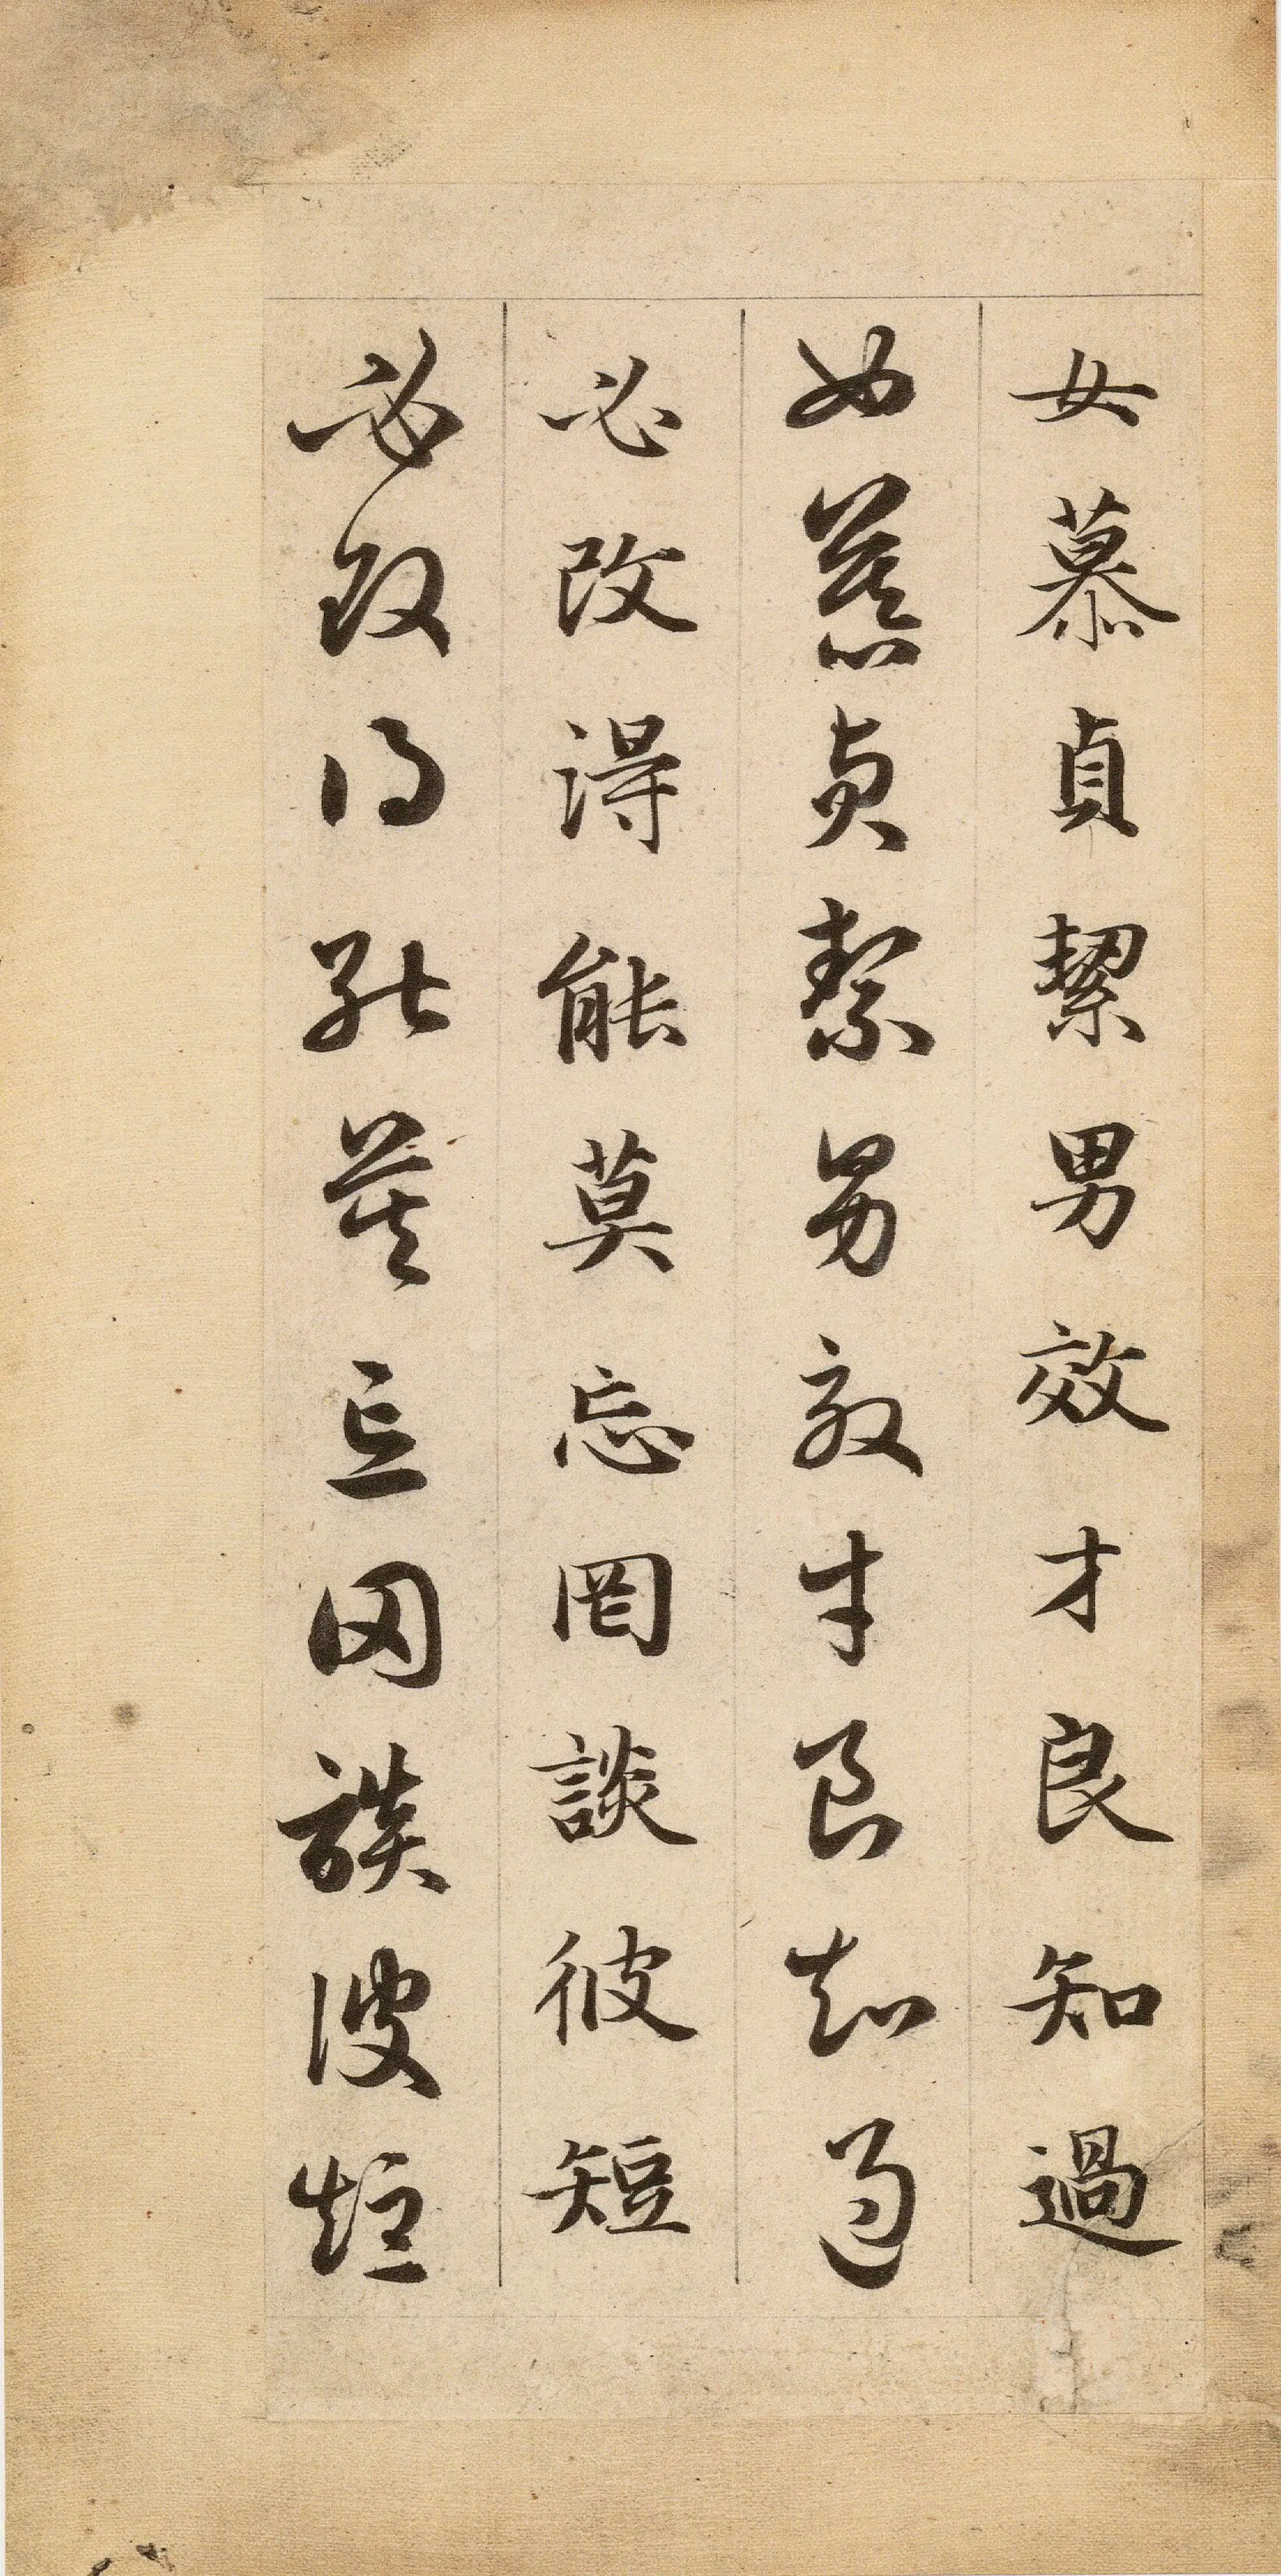 女慕貞絜男效才良知過
女慕貞絜男效才良知過
必改得能莫忘罔談彼短
必改得能莫忘罔談彼短